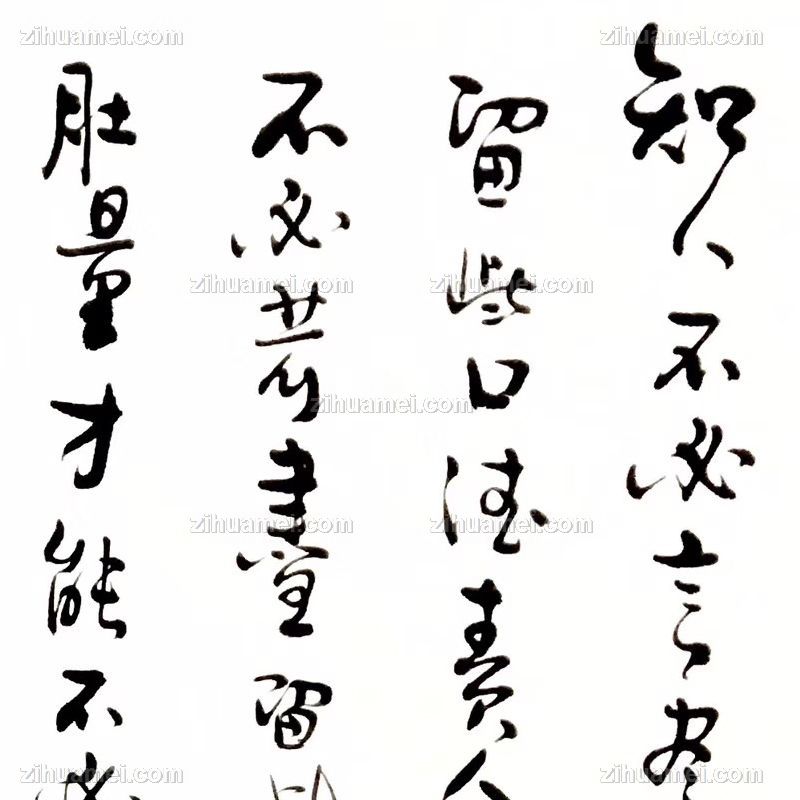 知人不必言尽
留些口德责人
不必苛盡留些
肚量才能不必
zihuamei.com
zihuamei.com
zihuamei.com
zihuamei.com
zihuamei.com
zihuamei.com
zihuamei.com
zihuamei.com
zihuamei.com